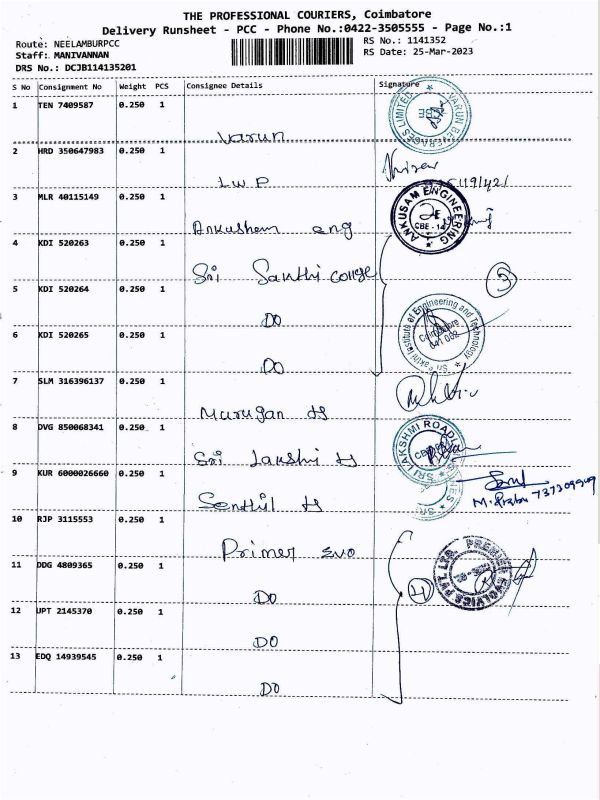 THE PROFESSIONAL COURIERS, Coimbatore
Delivery Runsheet - PCC - Phone No.:0422-3505555 - Page No.:1
Route: NEELAMBURPCC
Staff: MANIVANNAN
DRS No.: DCJB114135201
RS No.: 1141352
RS Date: 25-Mar-2023
S No Consignment No Weight PCS Consignee Details Signature
1 TEN 7409587 0.250 1
Varun
VARUN BEVERAGES LIMITED
CBE
2 HRD 350647983 0.250 1
I.W.P
3 MLR 40115149 0.250 1
Ankushem eng
ANKUSAM ENGINEERING
CBE - 14
4 KDI 520263 0.250 1
Sri Santhi college
3
5 KDI 520264 0.250 1
DO
Engineering and Technology
Coimbatore
641 062
6 KDI 520265 0.250 1
DO
7 SLM 316396137 0.250 1
Murugan ts
8 DVG 850068341 0.250 1
Sri Lakshi ts
SRI LAKSHMI
9 KUR 6000026660 0.250 1
Senthil ts
10 RJP 3115553 0.250 1
Primer Evo
PREMIER EVOLVICS PVT. LTD.
11 DDG 4809365 0.250 1
DO
4
12 UPT 2145370 0.250 1
DO
13 EDQ 14939545 0.250 1
DO